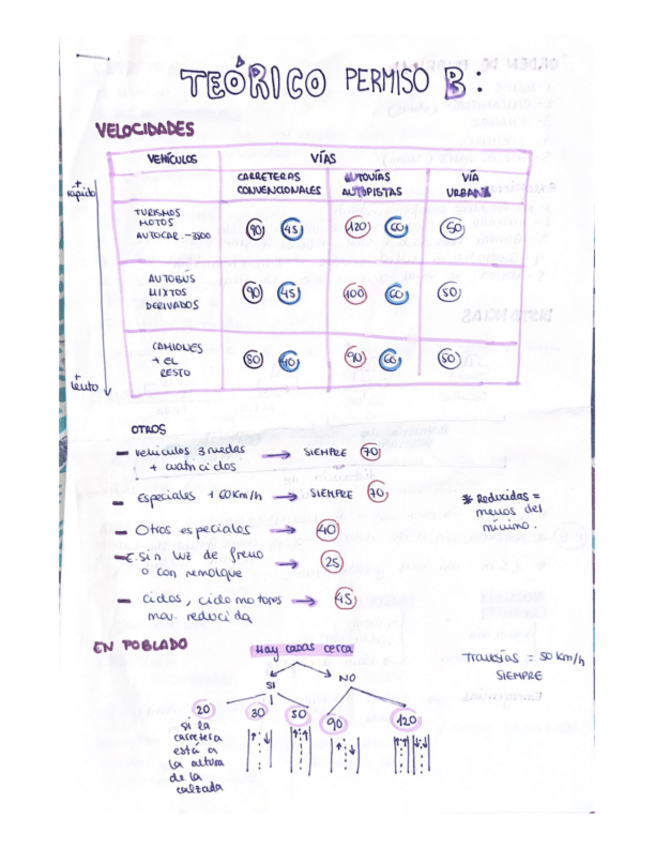 TEÓRICO PERMISO B:
VELOCIDADES
VEHÍCULOS VÍAS
CARRETERAS CONVENCIONALES AUTOVÍAS AUTOPISTAS VÍA URBANA
+ rápido
TURISMOS
MOTOS
AUTOCAR. -3500
90 45 120 60 50
AUTOBÚS
MIXTOS
DERIVADOS
90 45 100 60 50
CAMIONES
+ EL
RESTO
80 40 90 60 50
+ lento
OTROS
- vehículos 3 ruedas → SIEMPRE 70
+ cuatriciclos
- Especiales + 60 km/h → SIEMPRE 70
* Reducidas =
menos del
mínimo.
- Otros especiales → 40
- E. sin luz de freno → 25
o con remolque
- ciclos, ciclomotores → 45
mov. reducida
EN POBLADO
Hay casas cerca
Travesías = 50 km/h
SIEMPRE
SI NO
20 30 50 90 120
si la
carretera
está a
la altura
de la
calzada